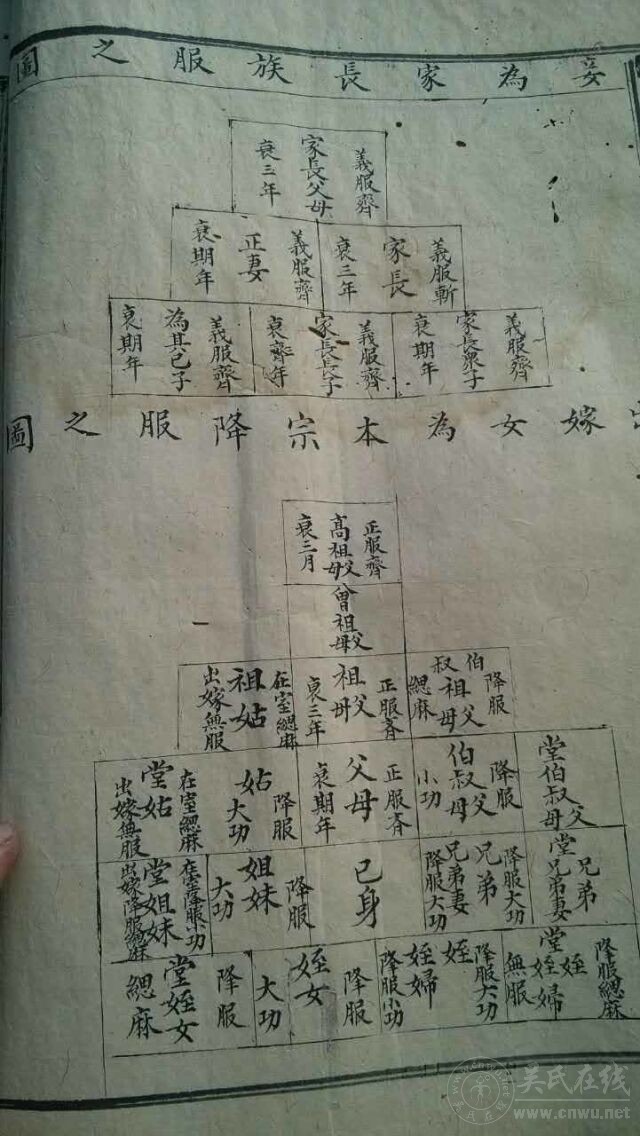 妾為家長族服之圖
義服齊 家長父母 衰三年
義服斬 家長 衰三年
義服齊 正妻 衰期年
義服齊 家長衆子 衰期年
義服齊 家長長子 衰齊年
義服齊 為其己子 衰期年
出嫁女為本宗降服之圖
正服齊 高祖父母 衰三月
曾祖父母
降服 伯叔祖父母 緦麻
正服斉 祖父母 衰三年
在室緦麻 祖姑 出嫁無服
堂伯叔父母
降服 伯叔父母 小功
正服斉 父母 衰期年
降服 姑 大功
在室緦麻 堂姑 出嫁無服
堂兄弟 堂兄弟妻
降服大功 兄弟 兄弟妻 降服大功
己身
降服 姐妹 大功
在室降服小功 堂姐妹 出嫁降服緦麻
降服緦麻 堂姪 堂姪婦 無服
降服大功 姪 姪婦 降服小功
降服 姪女 大功
降服 堂姪女 緦麻
吴氏在线
www.cnwu.net